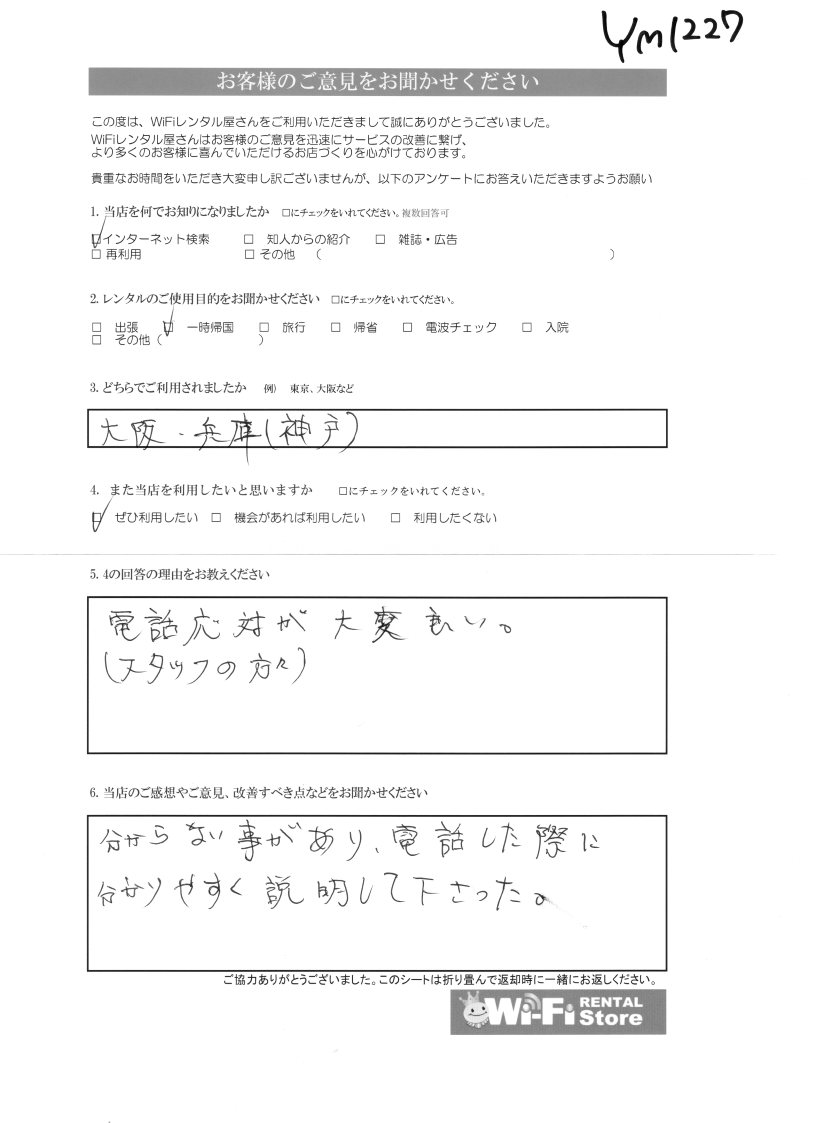 YM1227
お客様のご意見をお聞かせください
この度は、WiFiレンタル屋さんをご利用いただきまして誠にありがとうございました。
WiFiレンタル屋さんはお客様のご意見を迅速にサービスの改善に繋げ、
より多くのお客様に喜んでいただけるお店づくりを心がけております。
貴重なお時間をいただき大変申し訳ございませんが、以下のアンケートにお答えいただきますようお願い
1. 当店を何でお知りになりましたか □にチェックをいれてください。複数回答可
☑インターネット検索 □ 知人からの紹介 □ 雑誌・広告
□ 再利用 □ その他 ( )
2. レンタルのご使用目的をお聞かせください □にチェックをいれてください。
□ 出張 ☑ 一時帰国 □ 旅行 □ 帰省 □ 電波チェック □ 入院
□ その他 ( )
3. どちらでご利用されましたか 例) 東京、大阪など
大阪・兵庫(神戸)
4. また当店を利用したいと思いますか □にチェックをいれてください。
☑ ぜひ利用したい □ 機会があれば利用したい □ 利用したくない
5. 4の回答の理由をお教えください
電話応対が大変良い。
(スタッフの方々)
6. 当店のご感想やご意見、改善すべき点などをお聞かせください
分からない事があり、電話した際に
分かりやすく説明して下さった。
ご協力ありがとうございました。このシートは折り畳んで返却時に一緒にお返しください。
Wi-Fi RENTAL Store